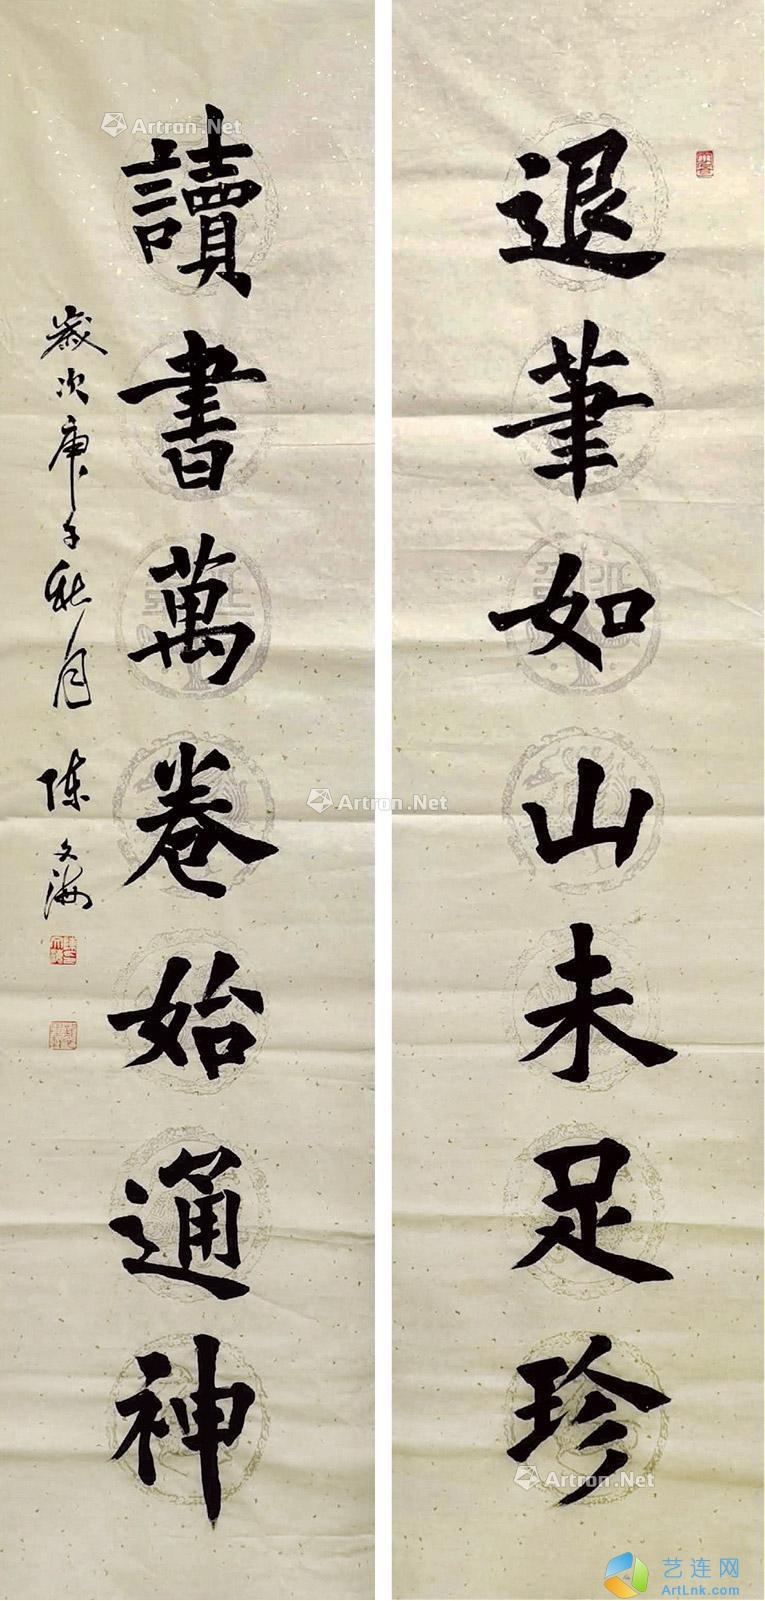 退筆如山未足珍
讀書萬卷始通神
歲次庚子秋月 陈文海
Artron.Net
Artron.Net
Artron.Net
艺连网
ArtLnk.com